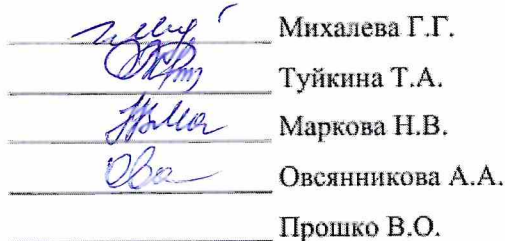 Михалева Г.Г.
Туйкина Т.А.
Маркова Н.В.
Овсянникова А.А.
Прошко В.О.